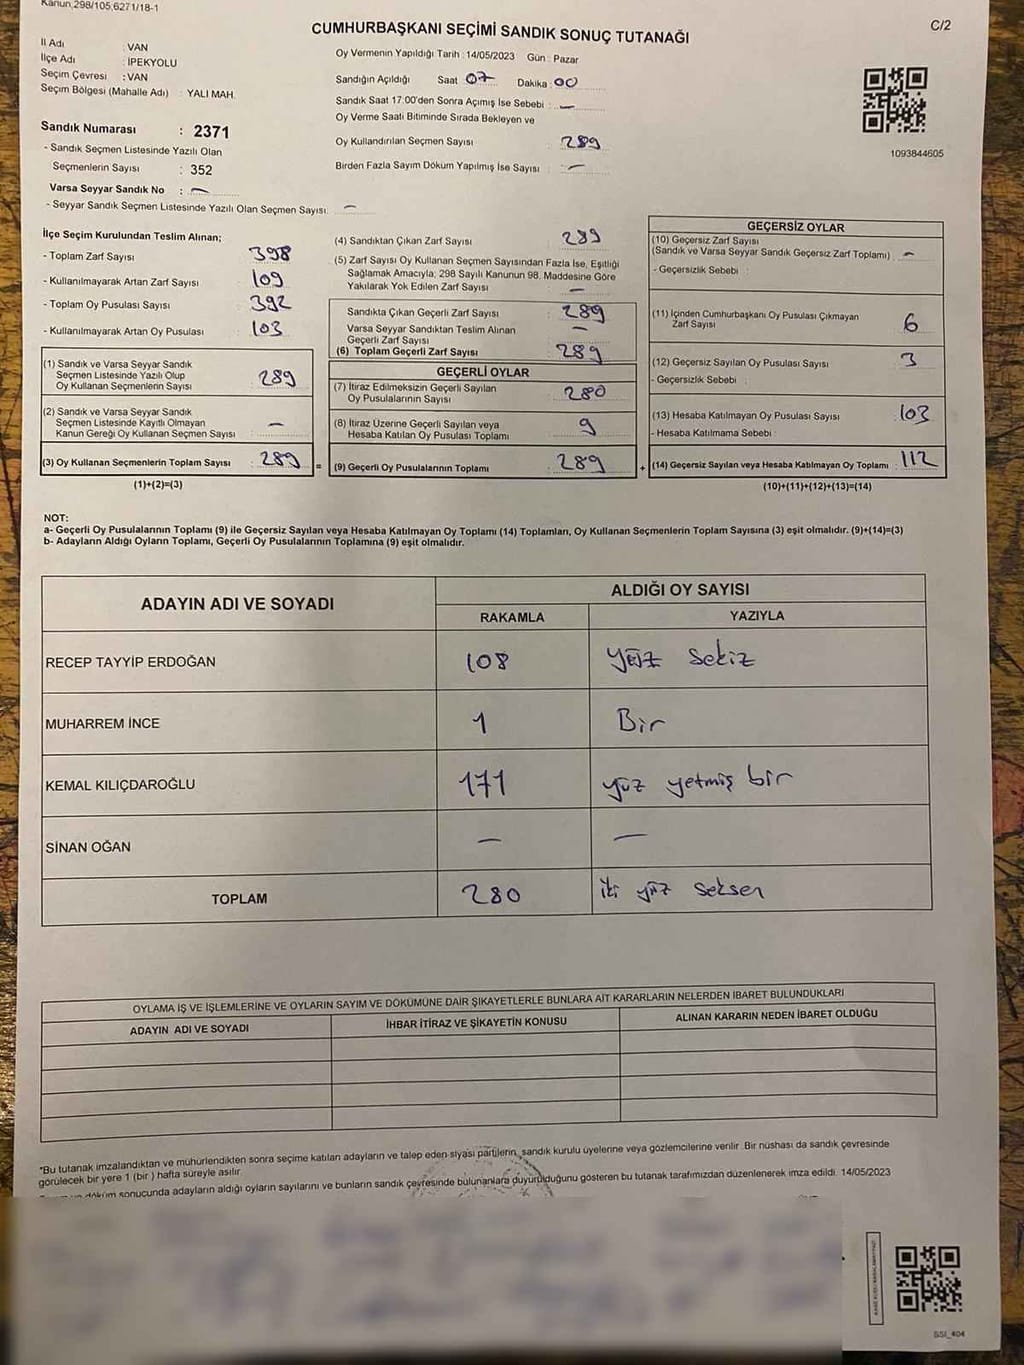 Kanun,298/105,6271/18-1
CUMHURBAŞKANI SEÇİMİ SANDIK SONUÇ TUTANAĞI
C/2
İl Adı : VAN
İlçe Adı : İPEKYOLU
Seçim Çevresi : VAN
Seçim Bölgesi (Mahalle Adı) : YALI MAH.
Oy Vermenin Yapıldığı Tarih : 14/05/2023 Gün : Pazar
Sandığın Açıldığı Saat 07 Dakika : 00
Sandık Saat 17:00'den Sonra Açımış İse Sebebi : —
Oy Verme Saati Bitiminde Sırada Bekleyen ve
Oy Kullandırılan Seçmen Sayısı : 289
Birden Fazla Sayım Döküm Yapılmış İse Sayısı : —
1093844605
Sandık Numarası : 2371
- Sandık Seçmen Listesinde Yazılı Olan
Seçmenlerin Sayısı : 352
Varsa Seyyar Sandık No : —
- Seyyar Sandık Seçmen Listesinde Yazılı Olan Seçmen Sayısı: —
İlçe Seçim Kurulundan Teslim Alınan;
- Toplam Zarf Sayısı : 398
- Kullanılmayarak Artan Zarf Sayısı : 109
- Toplam Oy Pusulası Sayısı : 392
- Kullanılmayarak Artan Oy Pusulası : 103
(1) Sandık ve Varsa Seyyar Sandık
Seçmen Listesinde Yazılı Olup
Oy Kullanan Seçmenlerin Sayısı : 289
(2) Sandık ve Varsa Seyyar Sandık
Seçmen Listesinde Kayıtlı Olmayan
Kanun Gereği Oy Kullanan Seçmen Sayısı : —
(3) Oy Kullanan Seçmenlerin Toplam Sayısı : 289 =
(1)+(2)=(3)
(4) Sandıktan Çıkan Zarf Sayısı : 289
(5) Zarf Sayısı Oy Kullanan Seçmen Sayısından Fazla İse, Eşitliği
Sağlamak Amacıyla; 298 Sayılı Kanunun 98. Maddesine Göre
Yakılarak Yok Edilen Zarf Sayısı : —
Sandıkta Çıkan Geçerli Zarf Sayısı : 289
Varsa Seyyar Sandıktan Teslim Alınan
Geçerli Zarf Sayısı : —
(6) Toplam Geçerli Zarf Sayısı : 289
GEÇERLİ OYLAR
(7) İtiraz Edilmeksizin Geçerli Sayılan
Oy Pusulalarının Sayısı : 280
(8) İtiraz Üzerine Geçerli Sayılan veya
Hesaba Katılan Oy Pusulası Toplamı : 9
(9) Geçerli Oy Pusulalarının Toplamı : 289 +
GEÇERSİZ OYLAR
(10) Geçersiz Zarf Sayısı
(Sandık ve Varsa Seyyar Sandık Geçersiz Zarf Toplamı) : —
- Geçersizlik Sebebi :
(11) İçinden Cumhurbaşkanı Oy Pusulası Çıkmayan
Zarf Sayısı : 6
(12) Geçersiz Sayılan Oy Pusulası Sayısı : 3
- Geçersizlik Sebebi :
(13) Hesaba Katılmayan Oy Pusulası Sayısı : 103
- Hesaba Katılmama Sebebi :
(14) Geçersiz Sayılan veya Hesaba Katılmayan Oy Toplamı : 112
(10)+(11)+(12)+(13)=(14)
NOT:
a- Geçerli Oy Pusulalarının Toplamı (9) ile Geçersiz Sayılan veya Hesaba Katılmayan Oy Toplamı (14) Toplamları, Oy Kullanan Seçmenlerin Toplam Sayısına (3) eşit olmalıdır. (9)+(14)=(3)
b- Adayların Aldığı Oyların Toplamı, Geçerli Oy Pusulalarının Toplamına (9) eşit olmalıdır.
ADAYIN ADI VE SOYADI
ALDIĞI OY SAYISI
RAKAMLA YAZIYLA
RECEP TAYYİP ERDOĞAN 108 yüz sekiz
MUHARREM İNCE 1 Bir
KEMAL KILIÇDAROĞLU 171 yüz yetmiş bir
SİNAN OĞAN — —
TOPLAM 280 iki yüz seksen
OYLAMA İŞ VE İŞLEMLERİNE VE OYLARIN SAYIM VE DÖKÜMÜNE DAİR ŞİKAYETLERLE BUNLARA AİT KARARLARIN NELERDEN İBARET BULUNDUKLARI
ADAYIN ADI VE SOYADI İHBAR İTİRAZ VE ŞİKAYETİN KONUSU ALINAN KARARIN NEDEN İBARET OLDUĞU
*Bu tutanak imzalandıktan ve mühürlendikten sonra seçime katılan adayların ve talep eden siyasi partilerin, sandık kurulu üyelerine veya gözlemcilerine verilir. Bir nüshası da sandık çevresinde
görülecek bir yere 1 (bir ) hafta süreyle asılır.
döküm sonucunda adayların aldığı oyların sayılarını ve bunların sandık çevresinde bulunanlara duyurulduğunu gösteren bu tutanak tarafımızdan düzenlenerek imza edildi. 14/05/2023
SSI_404